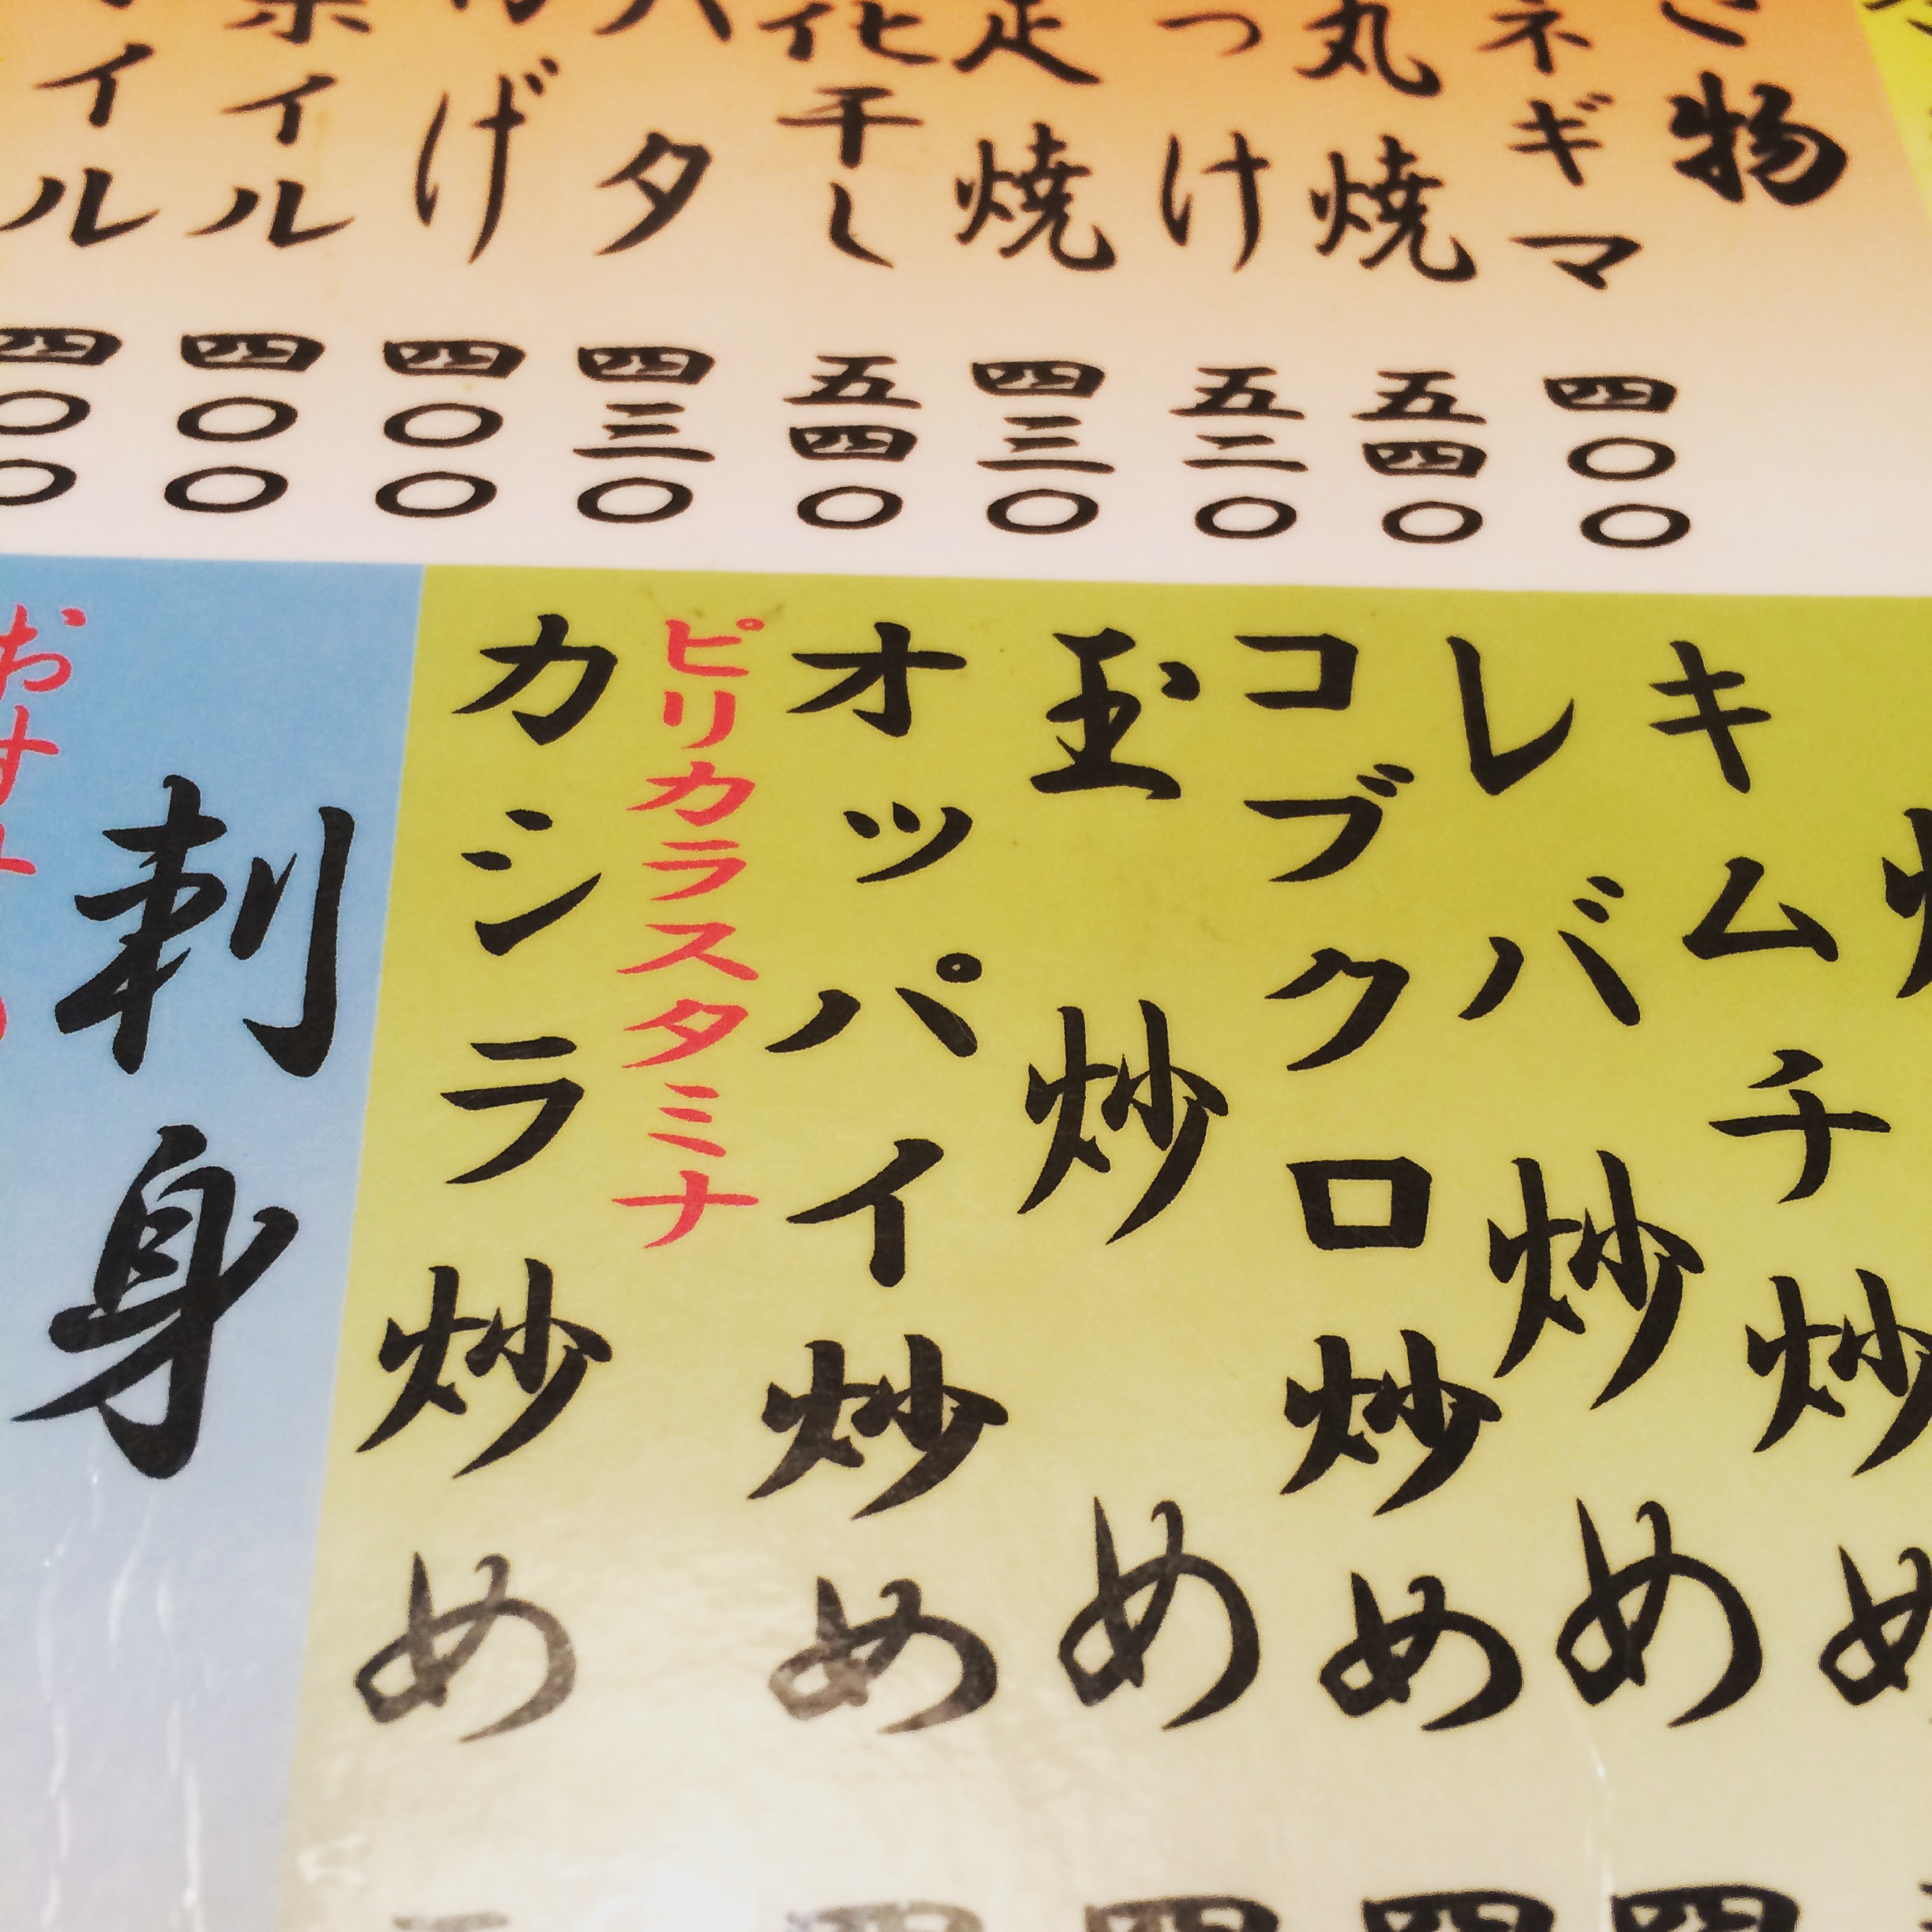 物
ネギマ 四〇〇
丸焼 五四〇
つけ 五二〇
足焼 四三〇
干し 五四〇
タ 四三〇
げ 四〇〇
イル 四〇〇
イル 四〇〇
キムチ炒め
レバ炒め
コブクロ炒め
玉炒め
オッパイ炒め
ピリカラスタミナ
カシラ炒め
刺身
おす